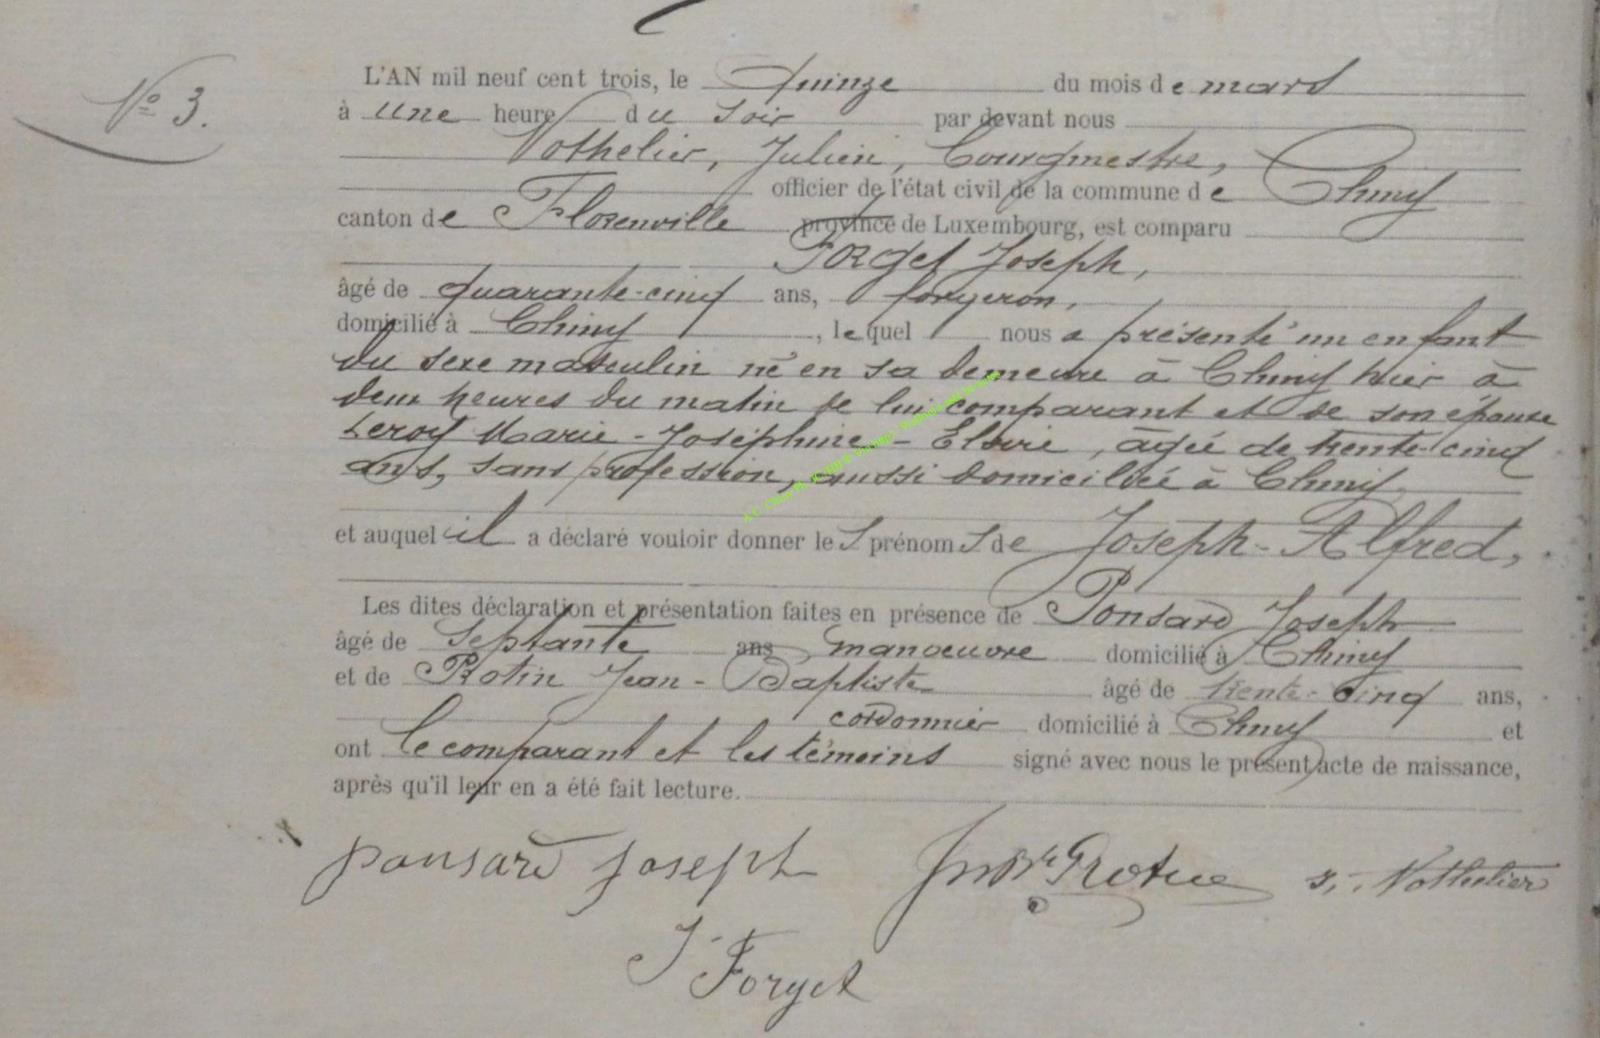 N° 3.
L'AN mil neuf cent trois, le quinze du mois de mars
à une heure du soir par devant nous
Nothelier, Julien, bourgmestre,
officier de l'état civil de la commune de Chiny
canton de Florenville province de Luxembourg, est comparu
Forget Joseph,
âgé de quarante-cinq ans, forgeron,
domicilié à Chiny, lequel nous a présenté un enfant
du sexe masculin né en sa demeure à Chiny hier à
deux heures du matin de lui comparant et de son épouse
Leroy Marie-Joséphine-Elvire, âgée de trente-cinq
ans, sans profession, aussi domiciliée à Chiny
et auquel il a déclaré vouloir donner les prénoms de Joseph-Alfred,
Les dites déclaration et présentation faites en présence de Ponsard Joseph
âgé de septante ans, manoeuvre domicilié à Chiny
et de Rotin Jean-Baptiste âgé de trente-cinq ans,
cordonnier domicilié à Chiny et
ont le comparant et les témoins signé avec nous le présent acte de naissance,
après qu'il leur en a été fait lecture.
ponsard joseph
J. Nothelier
J. Forget